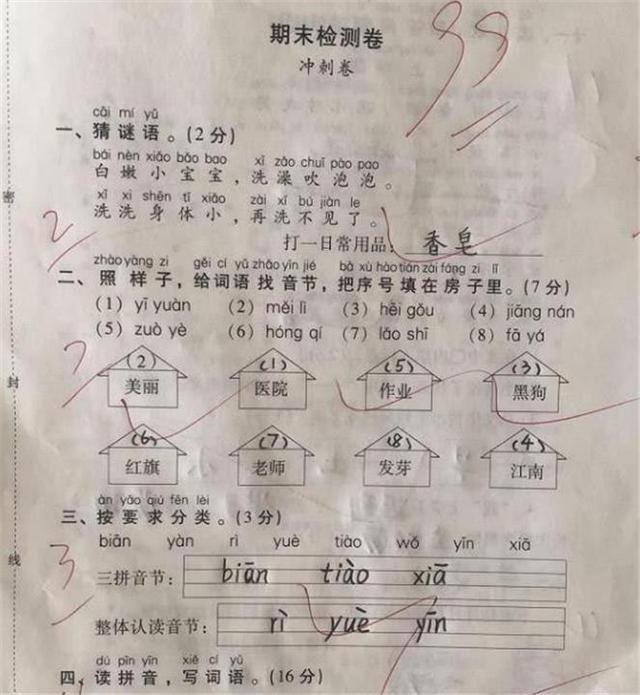 期末检测卷
99
冲刺卷
cāi mí yǔ
一、猜谜语。(2分)
bái nèn xiǎo bǎo bao xǐ zǎo chuī pào pao
白嫩小宝宝，洗澡吹泡泡。
xǐ xi shēn tǐ xiǎo zài xǐ bú jiàn le
洗洗身体小，再洗不见了。
2
打一日常用品：香皂
zhào yàng zi gěi cí yǔ zhǎo yīn jié bǎ xù hào tián zài fáng zi lǐ
二、照样子，给词语找音节，把序号填在房子里。(7分)
(1) yī yuàn (2) měi lì (3) hēi gǒu (4) jiāng nán
(5) zuò yè (6) hóng qí (7) lǎo shī (8) fā yá
7
(2) (1) (5) (3)
美丽 医院 作业 黑狗
(6) (7) (8) (4)
红旗 老师 发芽 江南
àn yāo qiú fēn lèi
三、按要求分类。(3分)
biān yàn rì yuè tiào wǒ yīn xiā
3
三拼音节： biān tiào xiā
整体认读音节： rì yuè yīn
dú pīn yīn xiě cí yǔ
四、读拼音，写词语。(16分)
密
封
线